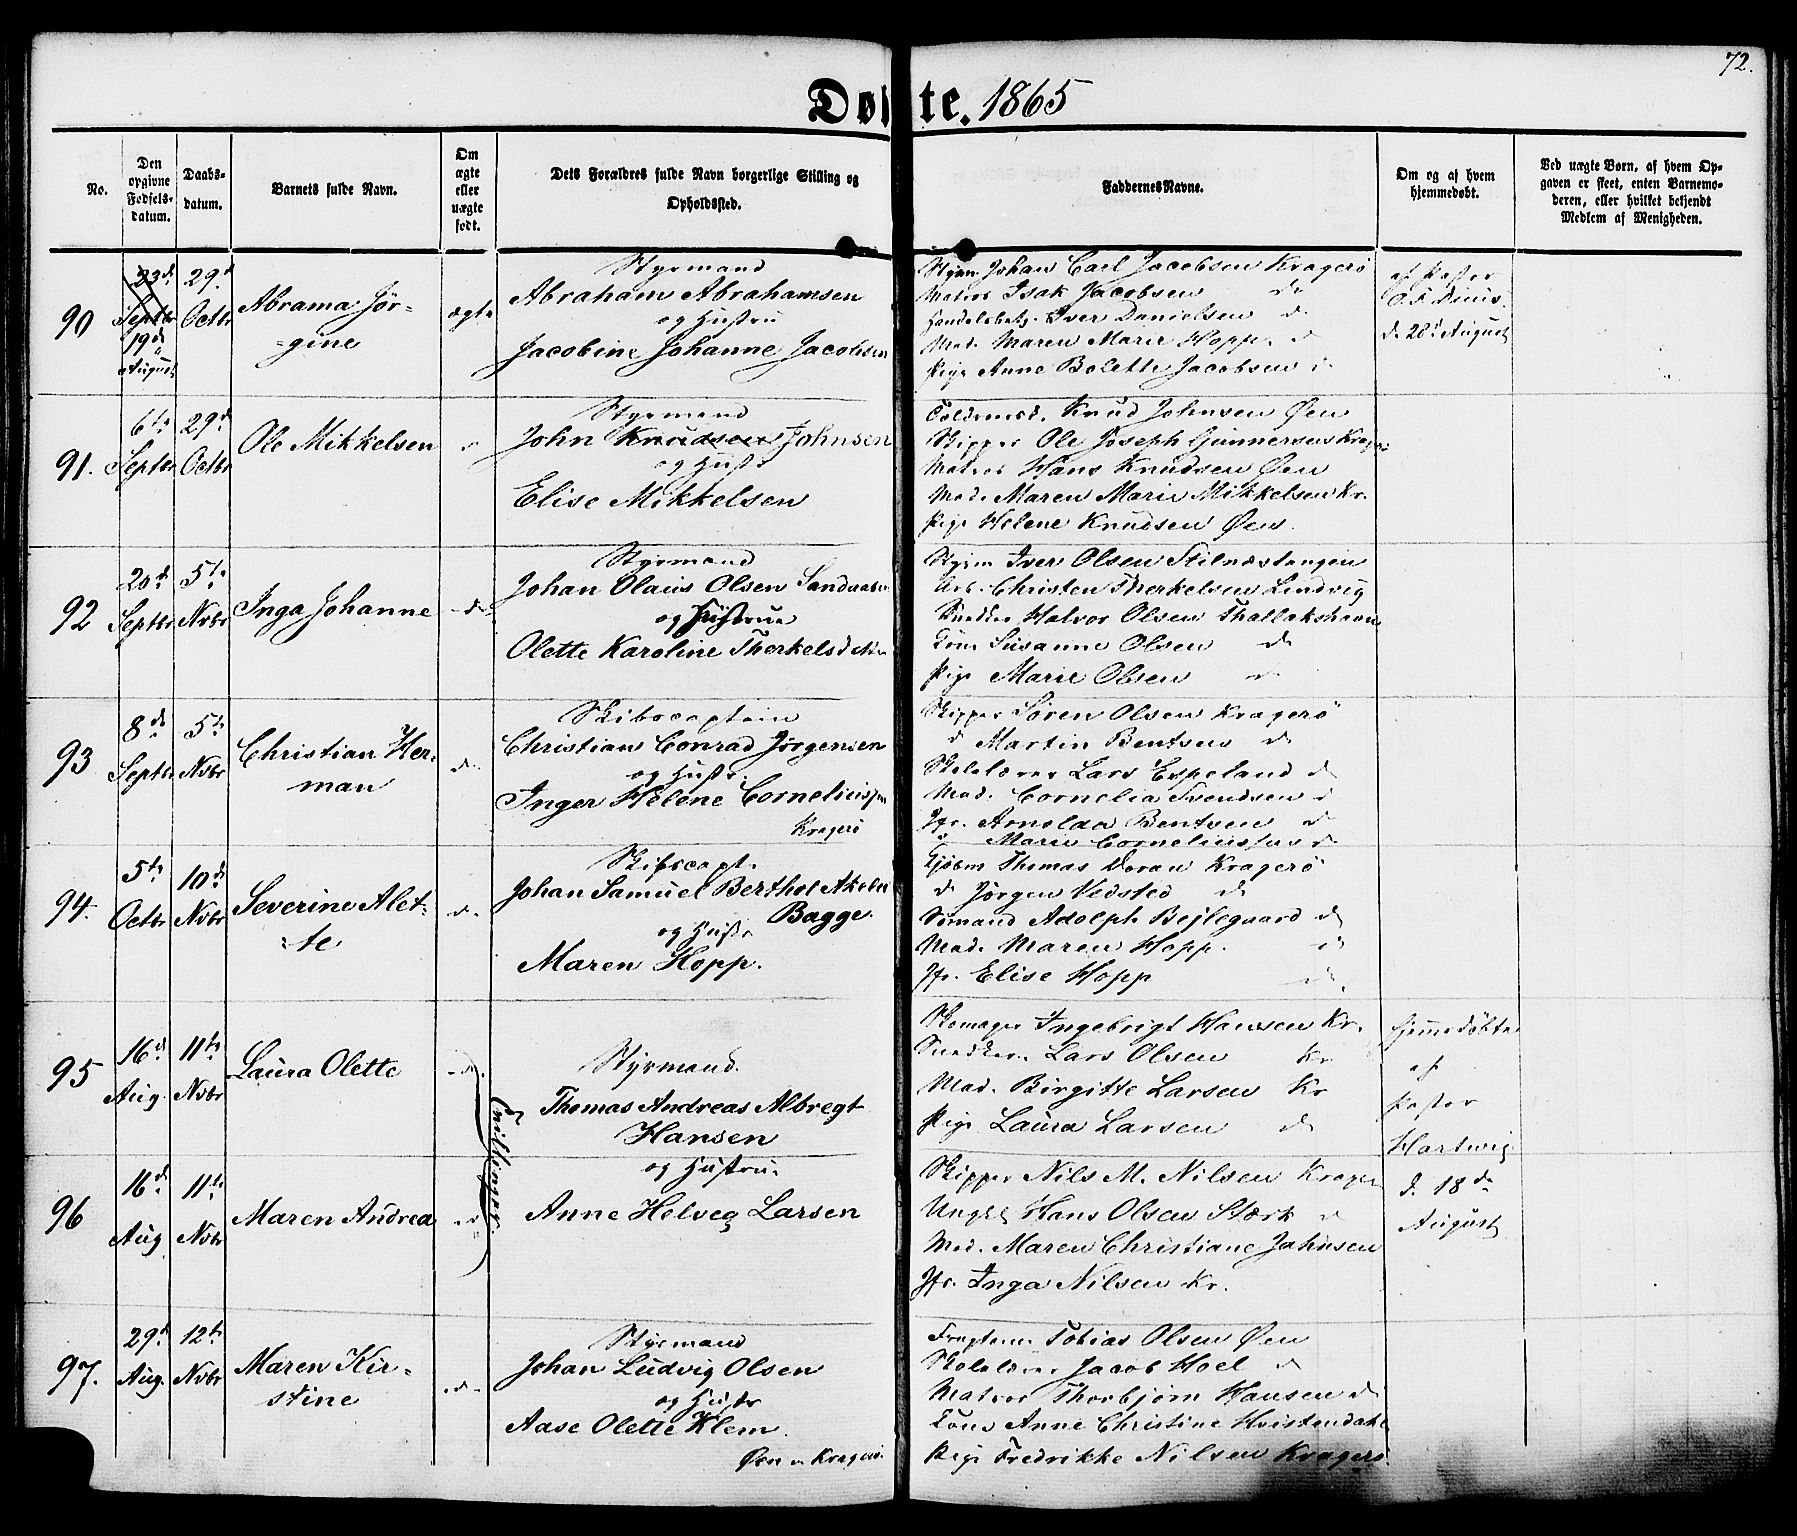 72.
Døbte. 1865
No.
Den opgivne Fødsels-datum.
Daabs-datum.
Barnets fulde Navn.
Om ægte eller uægte født.
Dets Forældres fulde Navn borgerlige Stilling og Opholdssted.
FaddernesNavne.
Om og af hvem hjemmedøbt.
Ved uægte Børn, af hvem Op-gaven er skeet, enten Barnemo-deren, eller hvilket bekjendt Medlem af Menigheden.
90
23d Septbr
19d August
29d Octbr
Abrama Jør-
-gine
ægte
Styrmand
Abraham Abrahamsen
og Hustru
Jacobine Johanne Jacobsen
Styrm. Johan Carl Jacobsen Kragerø
Matros Isak Jacobsen do
Iver Danielsen d
Mad. Maren Marie Hopp. d
Pige Anne Bolette Jacobsen d
af Pastor
d. 20d August
91.
6te Septbr
29d Octbr
Ole Mikkelsen
Styrmand
John Knudsen Johnsen
og Hustr
Elise Mikkelsen
Knud Johnsen Øen
Skipper Ole Joseph Gunnersen Kragerø
Matros Hans Knudsen Øen
Mad. Maren Marie Mikkelsen Kr.
Pige Helene Knudsen Øen.
92
20d Septbr
5te Nvbr
Inga Johanne
-d-
Styrmand
Johan Olaus Olsen Sandaasen
og Hustrue
Olette Karoline Therkelsdatter
Styrm Iver Olsen Stilnæstangen
Arb. Christen Therkelsen Lindvig
Snedker Halvor Olsen Thallakshavn
Kone Susanne Olsen d
Pige Marie Olsen d
93
8de Septbr
5te Nvbr
Christian Her-
man
d-
Skibscaptein
Christian Conrad Jørgensen
og Hustr.
Inger Helene Corneliussen
Kragerø
Skipper Søren Olsen Kragerø
d Martin Bentsen d
Skolelærer Lars Espeland d
Mad. Cornelia Svendsen d
Jfr. Arnolda Bentsen d
" Marie Corneliussen d
94.
5te Octbr
10d Nvbr
Severine Alet-
-te
d-
Skibscapt.
Johan Samuel Berthol Akeleie
Bagge
og Hustr
Maren Hopp.
Kjøbm Thomas Doran Kragerø
d Jørgen Vedsted d
Sømand Adolph Bejlegaard d
Mad. Maren Hopp. d
Jfr. Elise Hopp d.
95
16d Aug.
11te Nvbr
Laura Olette
-d-
Tvillinger.
Styrmand.
Thomas Andreas Albregt
Hansen
og Hustrue
Anne Helveg Larsen
Skomager Ingebrigt Hansen Kr.
Snedker. Lars Olsen Kr
Mad. Birgitte Larsen Kr
Pige Laura Larsen d
hjemmedøbte
af
Pastor
Hartwig
d. 18de
August
96
16d Aug
11te Nvbr
Maren Andrea
-d-
Skipper Nils M. Nilsen Kragerø
Ungk. Hans Olsen Stærk d
Mad. Maren Christiane Jahnsen
Jfr. Inga Nilsen Kr.
97.
29d Aug.
12te Nvbr
Maren Kir-
stine
-d-
Styrmand
Johan Ludvig Olsen
og Hustr
Aase Olette Klem.
Øen v Kragerø.
Tobias Olsen Øen
Skolelærer Jacob Hoel d
Matros Thorbjørn Hansen d
Kone Anne Christine Hvistendahl
Pige Fredrikke Nilsen Kragerø